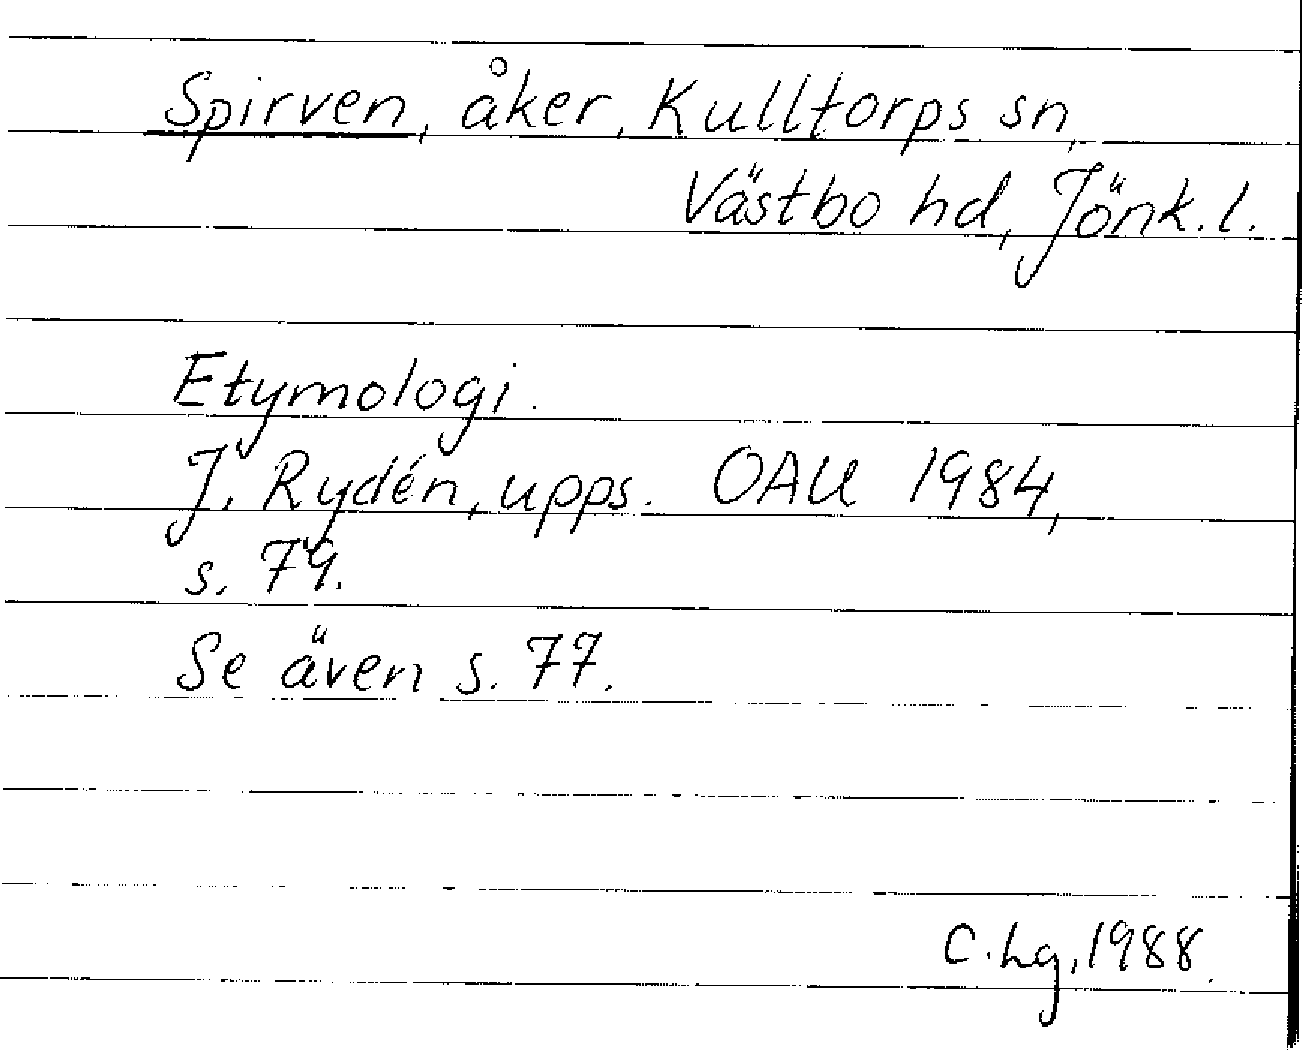 Spirven, åker, Kulltorps sn,
Västbo hd, Jönk. l.
Etymologi.
J. Rydén, upps. OAU 1984,
s. 79.
Se även s. 77.
C. Lg, 1988.